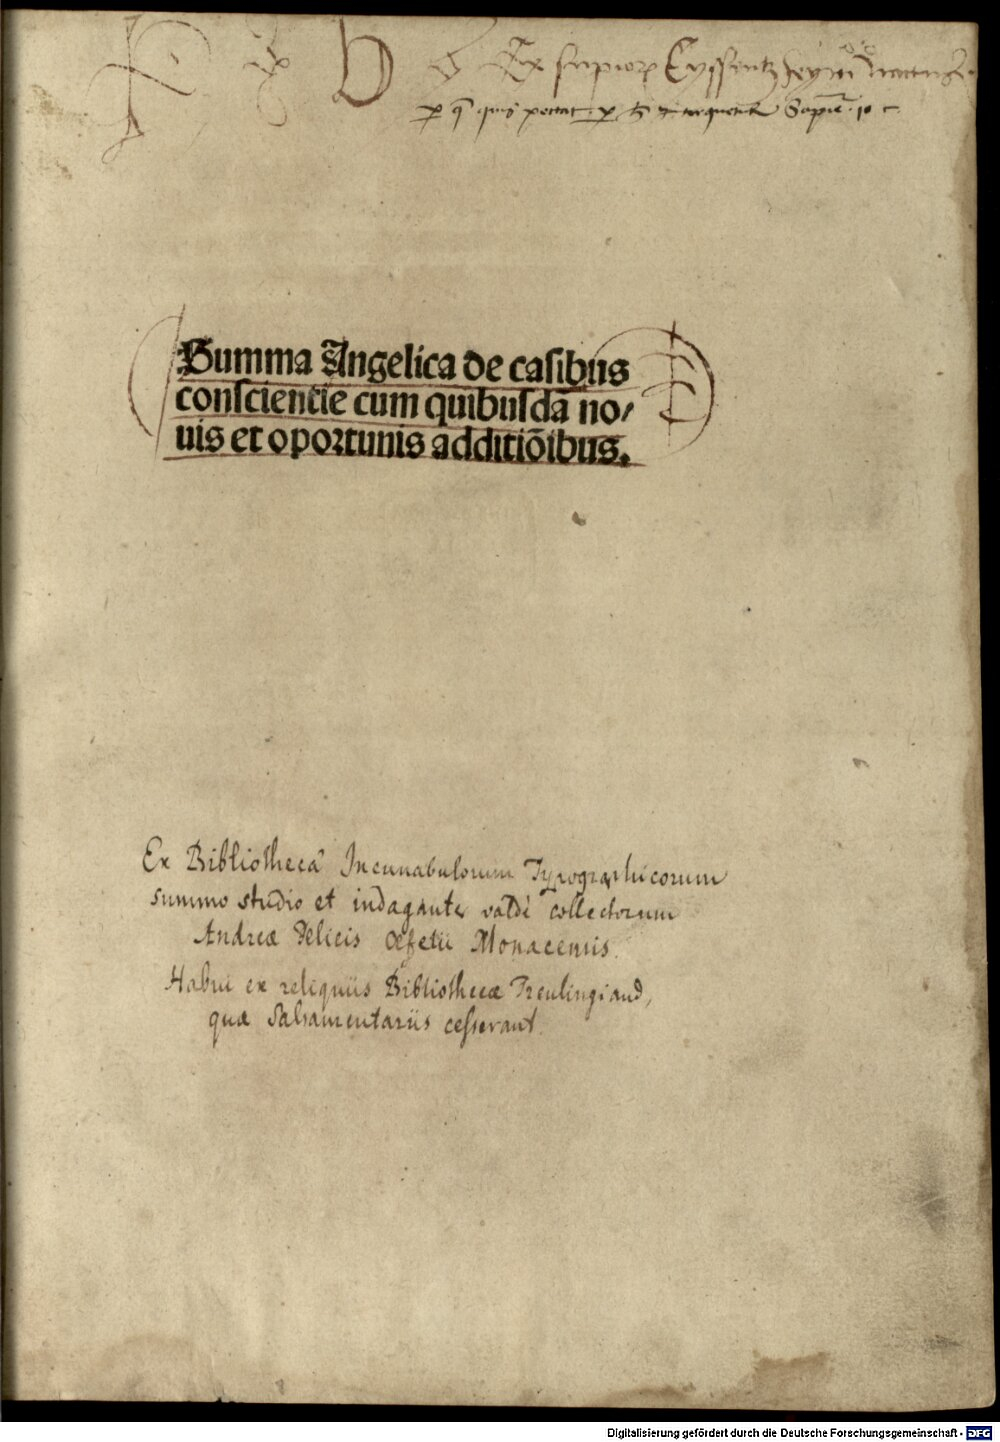 p qͥ quis peccat p h et torquetur Sapie. 10 c
Summa Angelica de casibus
conscientie cum quibusdã no/
uis et oportunis additiõibus.
Ex Bibliothecâ Incunabulorum Typographicorum
summo studio et indagante valdè collectorum
Andreæ Felicis Œfelii Monacensis.
Habui ex reliquiis Bibliothecæ
quæ Salsamentariis cesserant.
Digitalisierung gefördert durch die Deutsche Forschungsgemeinschaft - DFG